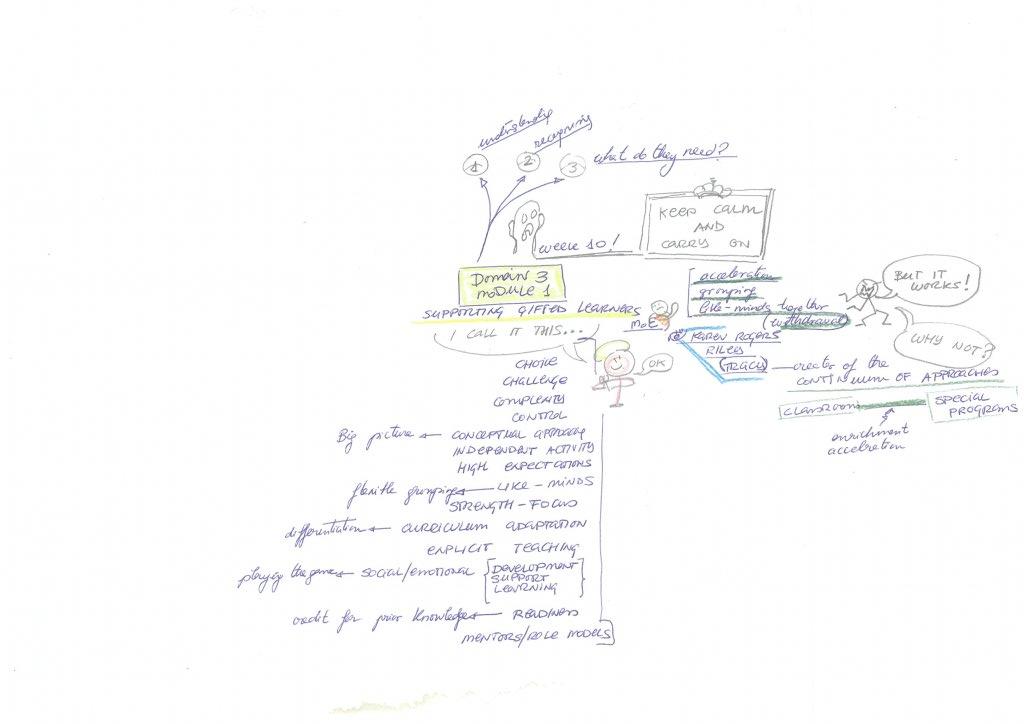 understanding
recognising
1
2
3
what do they need?
KEEP CALM
AND
CARRY ON
week 10!
Domain 3
module 1
SUPPORTING GIFTED LEARNERS
I CALL IT THIS...
acceleration
grouping
like-minds together
(withdrawal)
BUT IT
WORKS!
WHY NOT?
MoE
KAREN ROGERS
RILEY
(TRACY) — creator of the
CONTINUUM OF APPROACHES
CLASSROOM
SPECIAL
PROGRAMS
enrichment
acceleration
OK
CHOICE
CHALLENGE
COMPLEXITY
CONTROL
Big picture ← CONCEPTUAL APPROACH
INDEPENDENT ACTIVITY
HIGH EXPECTATIONS
flexible grouping ← LIKE-MINDS
STRENGTH-FOCUS
differentiation ← CURRICULUM ADAPTATION
EXPLICIT TEACHING
playing the game ← SOCIAL/EMOTIONAL
DEVELOPMENT
SUPPORT
LEARNING
credit for prior knowledge ← READINESS
MENTORS/ROLE MODELS